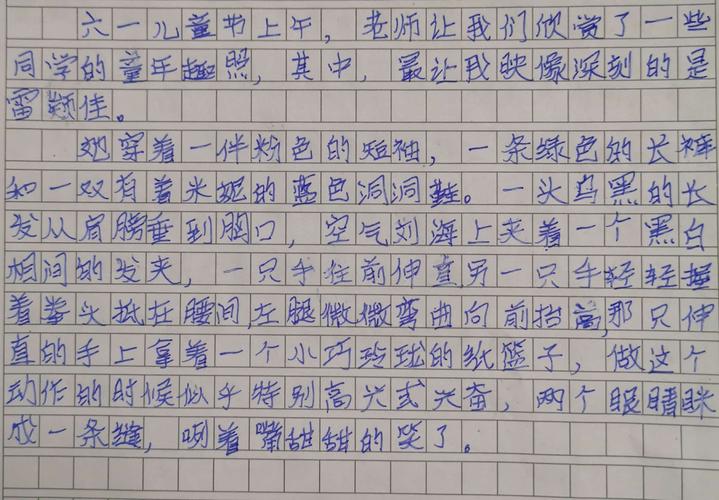 六一儿童节上午，老师让我们欣赏了一些
同学的童年趣照，其中，最让我映像深刻的是
雷颖佳。
她穿着一件粉色的短袖，一条绿色的长裤
和一双有着米妮的蓝色洞洞鞋。一头乌黑的长
发从肩膀垂到胸口，空气刘海上夹着一个黑白
相间的发夹，一只手往前伸直另一只手轻轻握
着拳头抵在腰间，左腿微微弯曲向前抬高，那只伸
直的手上拿着一个小巧玲珑的纸篮子，做这个
动作的时候似乎特别高兴或兴奋，两个眼睛眯
成一条缝，咧着嘴甜甜的笑了。